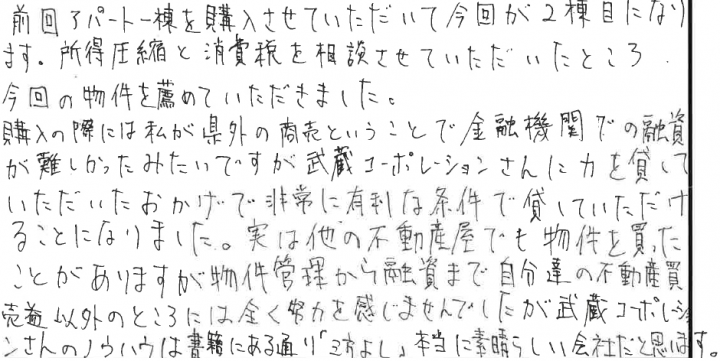 前回アパート一棟を購入させていただいて今回が2棟目になり
ます。所得圧縮と消費税を相談させていただいたところ、
今回の物件を薦めていただきました。
購入の際には私が県外の商売ということで金融機関での融資
が難しかったみたいですが武蔵コーポレーションさんに力を貸して
いただいたおかげで非常に有利な条件で貸していただけ
ることになりました。実は他の不動産屋でも物件を買った
ことがありますが物件管理から融資まで自分達の不動産買
売益以外のところには全く努力を感じませんでしたが武蔵コーポレーショ
ンさんのノウハウは書籍にある通り「三方よし」本当に素晴らしい会社だと思います。